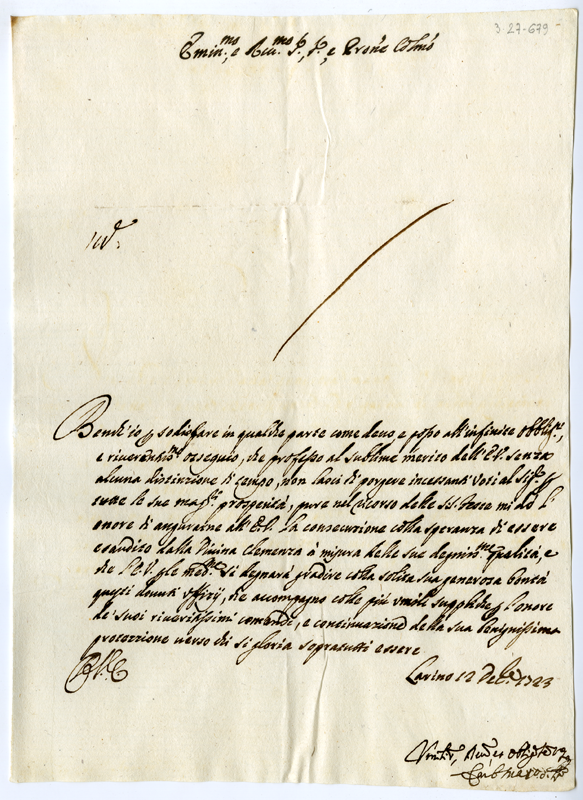 3-27-679
Emin.mo e Rev.mo S.r, S.r, e Prone Colmo
Bench'io p sodisfare in qualche parte come devo e posso all'infinite obblig.i,
e riverentis.mo ossequio, che professo al sublime merito dell'E.V. senza
alcuna distinzione di tempo, non lasci di porgere incessanti Voti al Sig.e p
tutte le sue mag.ri prosperità, pure nel ricorso delle S.S. Feste mi dò l'
onore di augurarne all'E.V. la consecuzione colla speranza di essere
esaudito dalla Divina Clemenza à misura delle sue degnis.me qualità, e
che l'E.V. p le med.me si degnarà gradire colla solita sua generosa bontà
questi devoti uffizij, che accompagno colle più umili suppliche p l'onore
de' suoi riveritissimi comandi, e continuazione della sua benignissima
protezzione verso chi si gloria sopratutti essere
Larino 12 Dec.e 1723
Umil.o, Dev.o et obblig.o